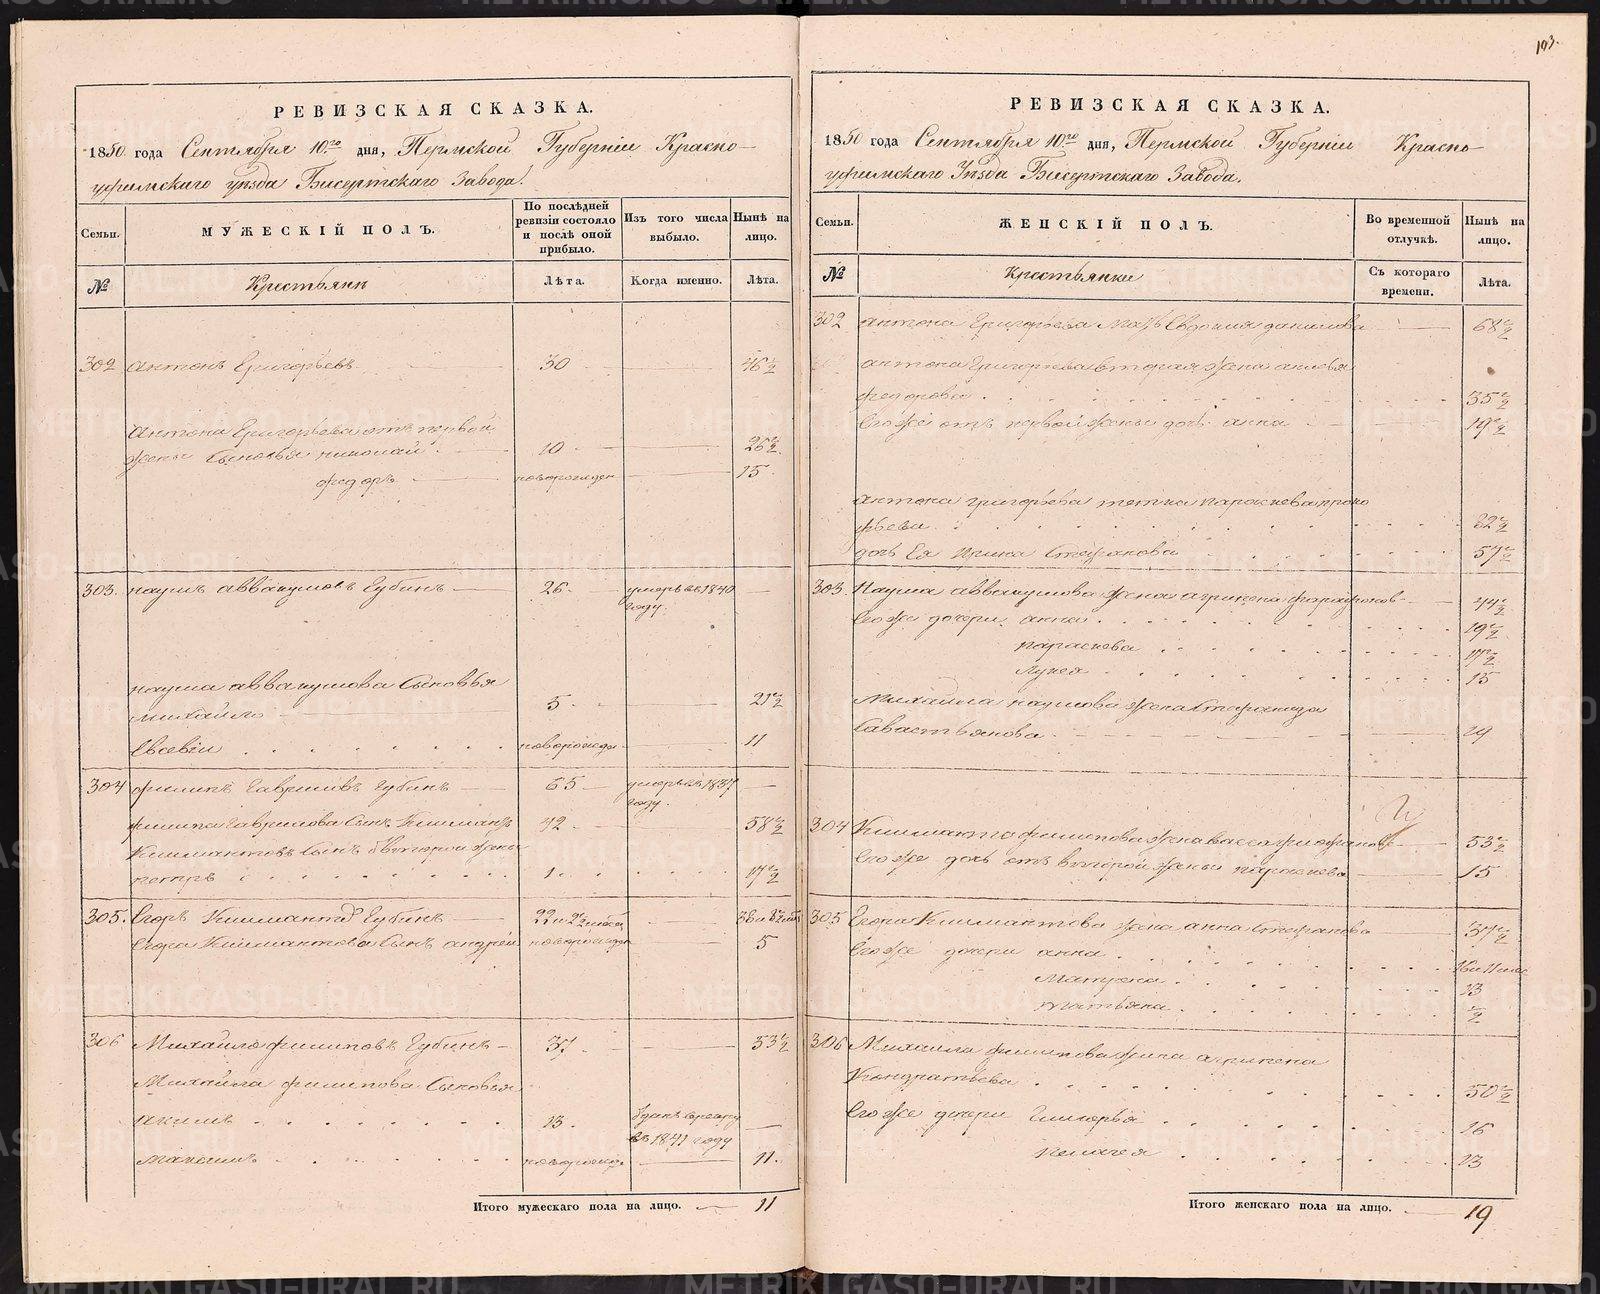 103.
РЕВИЗСКАЯ СКАЗКА.
1850 года Сентября 10го дня, Пермской Губерніи Красно-
уфимскаго уѣзда Бисертскаго Завода.
Семьи.
МУЖЕСКІЙ ПОЛЪ.
По послѣдней ревизіи состояло и послѣ оной прибыло.
Изъ того числа выбыло.
Нынѣ на лицо.
№
Крестьяне
Лѣта.
Когда именно.
Лѣта.
302 Антонъ Григорьевъ 30 46½
Антона Григорьева отъ первой
жены Сыновья николай 10 26½
федоръ новорожден 15
303. наумъ аввакумовъ Губинъ 26 умеръ въ 1840 году.
наума аввакумова Сыновья
михайло 5 21½
Евсевіи новорожде 11
304 филипъ Гавриловъ Губинъ 65 умеръ въ 1837 году.
филипа Гаврилова Сынъ Климантъ 42 58½
Климантовъ Сынъ отвторой жены
петръ 1 17½
305. Егоръ Климантов Губинъ 22 и
Егора Климантова Сынъ андрей новорожде 5
306 Михайло филиповъ Губинъ 37 53½
Михайла филипова Сыновья
акимъ 13 въ 1841 году
максимъ новорожде 11.
Итого мужескаго пола на лицо. 11
РЕВИЗСКАЯ СКАЗКА.
1850 года Сентября 10го дня, Пермской Губерніи Красно-
уфимскаго Уѣзда Бисертскаго Завода.
Семьи.
ЖЕНСКІЙ ПОЛЪ.
Во временной отлучкѣ.
Нынѣ на лицо.
№
Крестьянки
Съ котораго времени.
Лѣта.
302 антона Григорьева мать Евдокия данилова 68½
антона Григорьева вторая жена
федорова 35½
Егоже отъ первой жены дочь анна 19½
антона григорьева тетка парасковья проко
фьева 82½
дочь Ея Ирина Стефанова 57½
303. Наума аввакумова жена агрипена 44½
Егоже дочери анна 19½
параскева 17½
Лукея 15
Михайла наумова жена Стефанида
Савастьянова 29
304 Климанта филипова жена васса 53½
Егоже дочь отъ второй жены параскева 15
305 Егора Климантова жена анна Стефанова 37½
Егоже дочери анна 16 и 11 мес
Матрена 13
татьяна ½
306 Михаила филипова жена агрипена
Кондратьева 50½
Егоже дочери Гликерья 16
пелагея 13
Итого женскаго пола на лицо. 19
METRIKI.GASO-URAL.RU